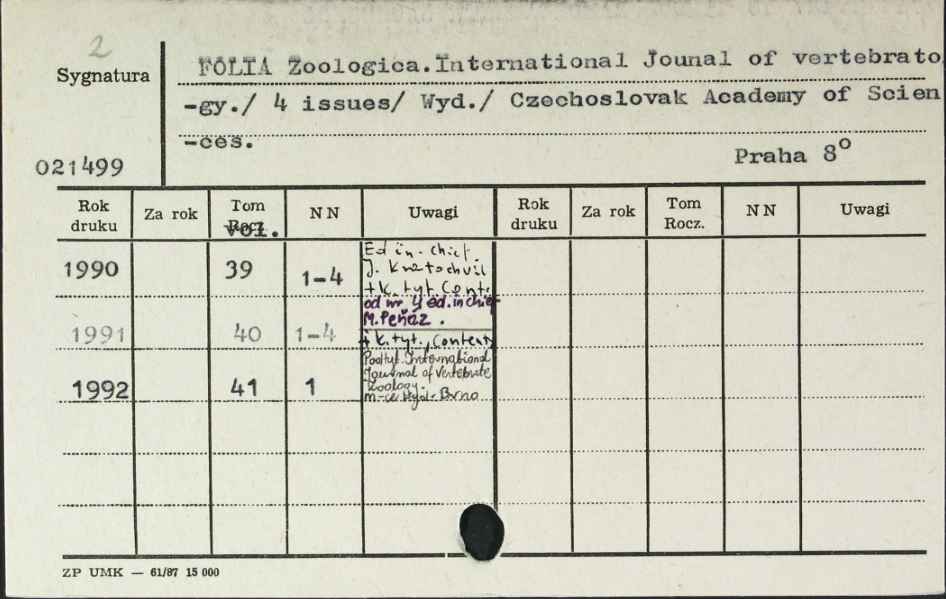 2
Sygnatura
FOLIA Zoologica.International Jounal of vertebrato
-gy./ 4 issues/ Wyd./ Czechoslovak Academy of Scien
-ces.
021499
Praha 8o
Rok druku Za rok Tom Rocz. vol. NN Uwagi Rok druku Za rok Tom Rocz. NN Uwagi
1990 39 1-4 Ed in. chief.
J. Kratochvil
+ k. tyt Cont.
od nr 4 ed. in chief
M. Peňáz.
1991 40 1-4 + k. tyt., Contents
Podtyt. International
Journal of Vertebrate
Zoology.
1992 41 1 m-ce wyd. - Brno
ZP UMK — 61/87 15 000